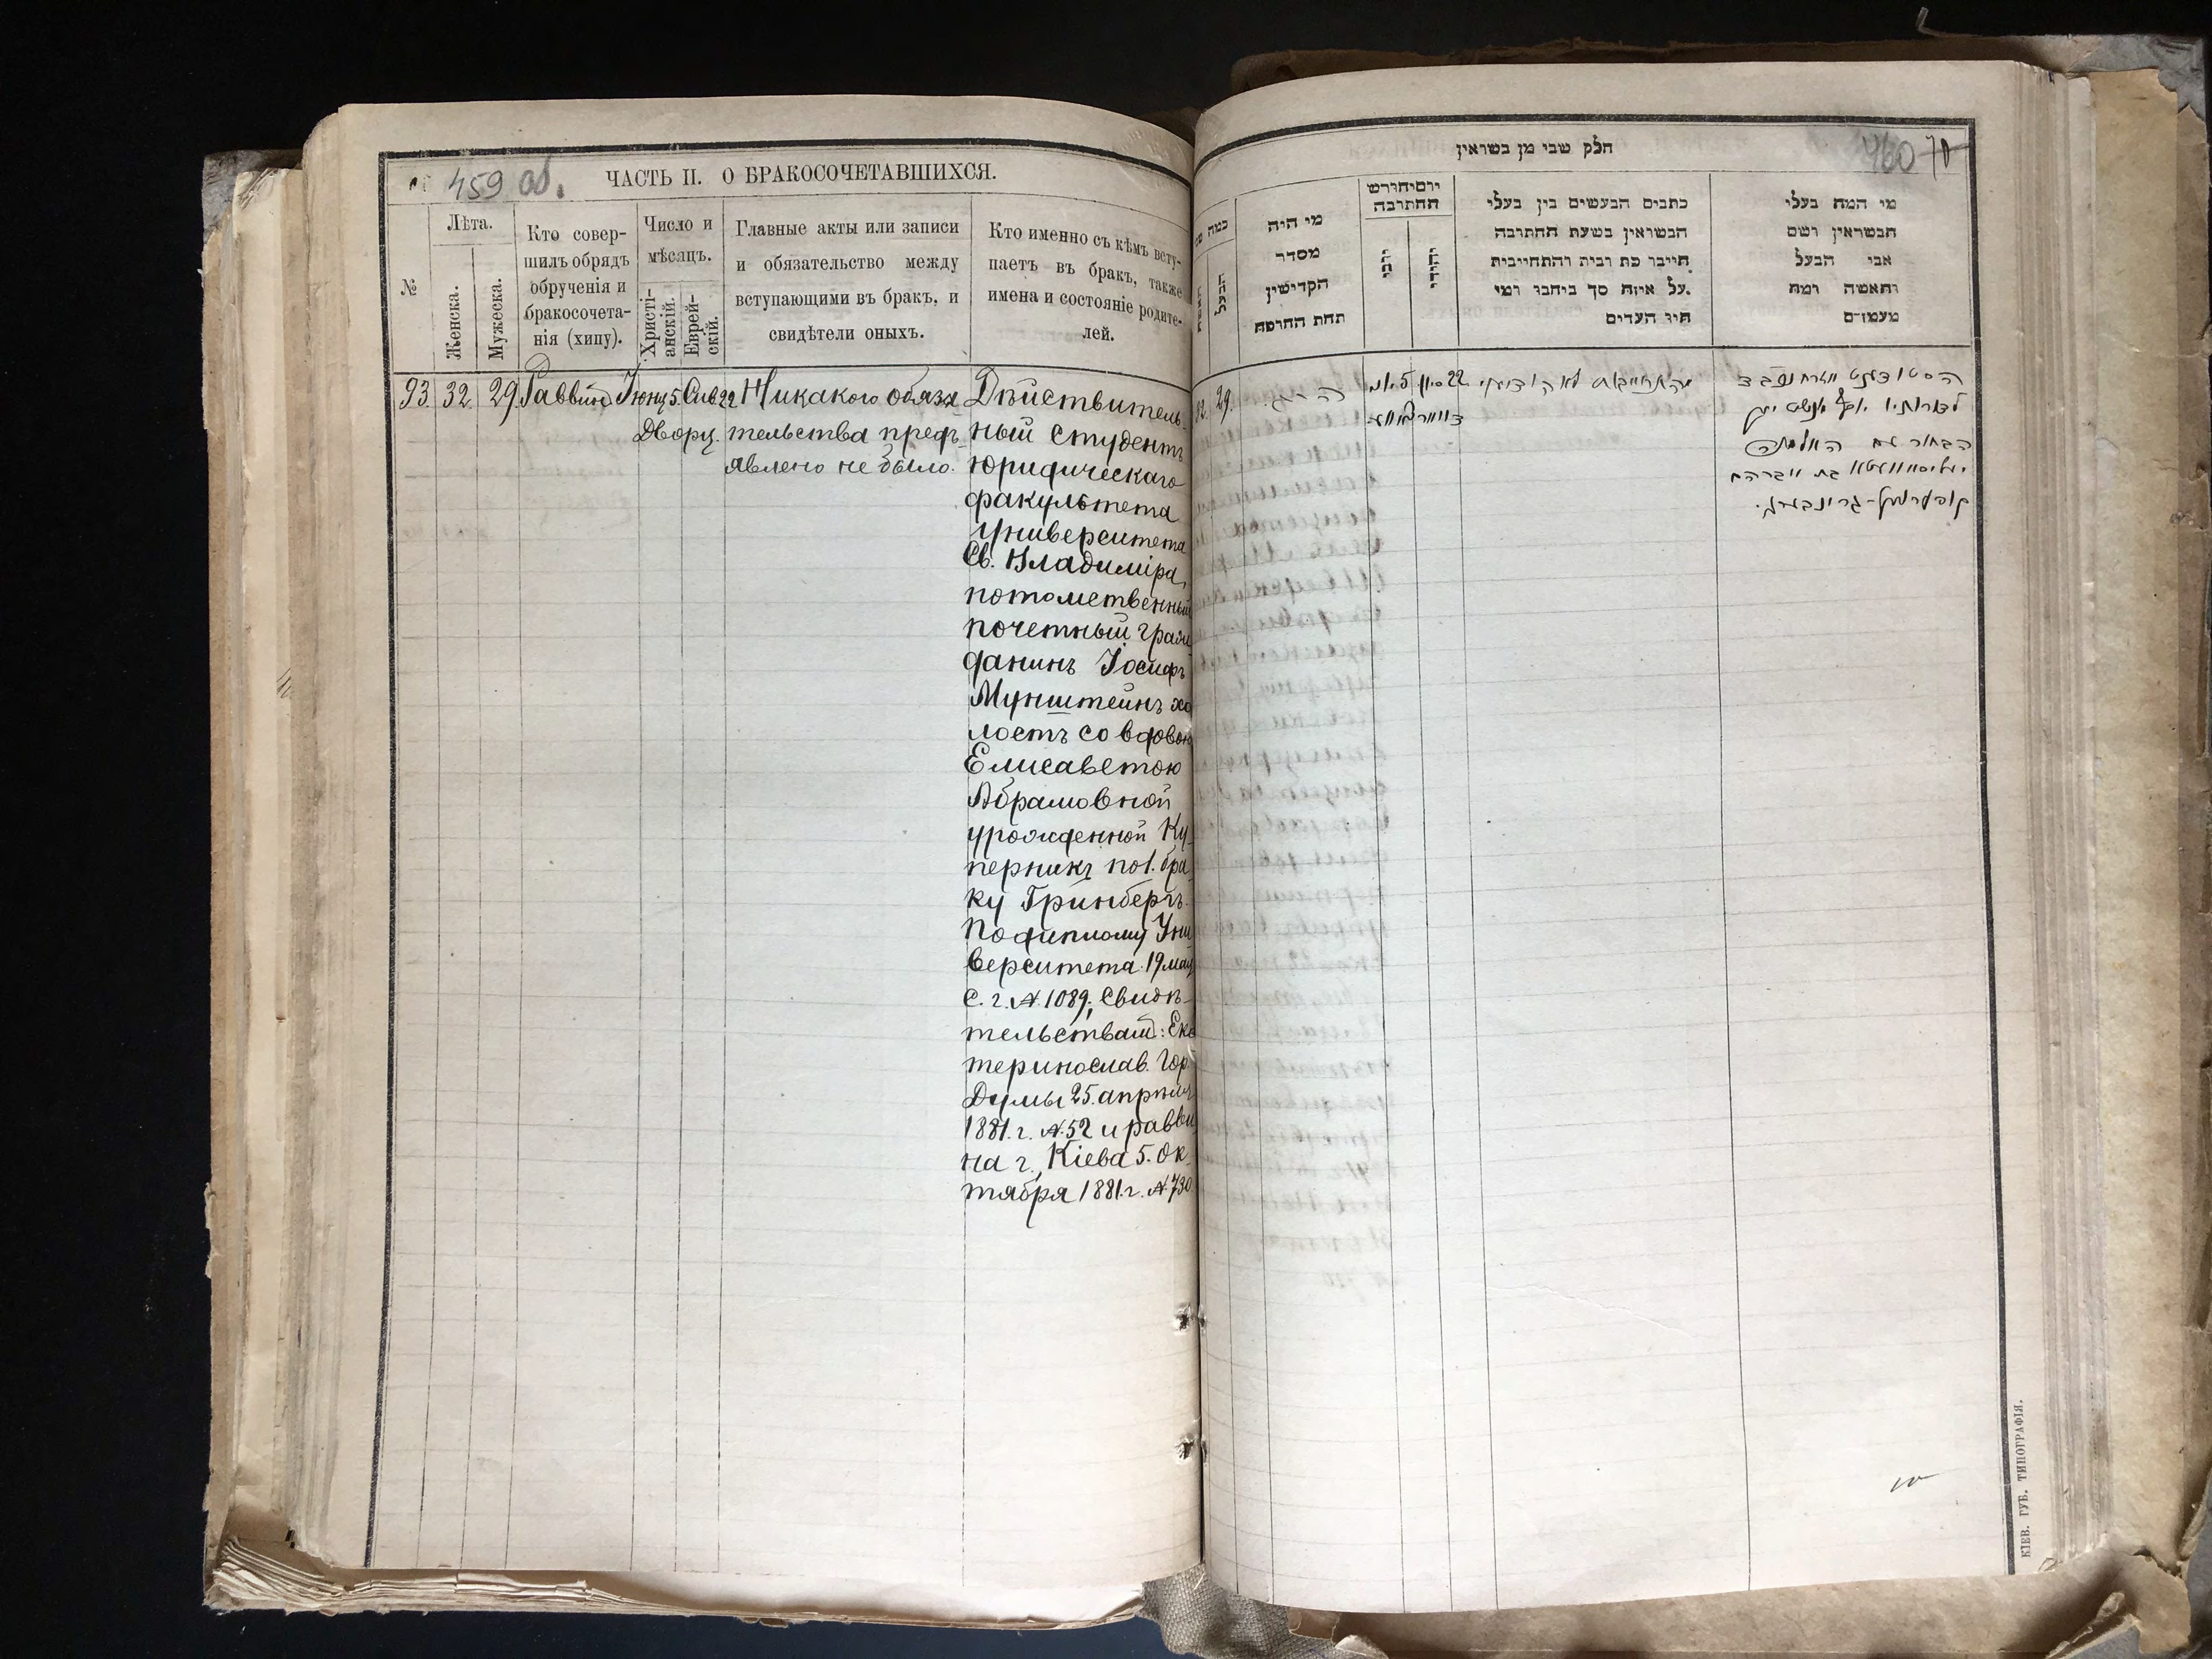 459 об.
ЧАСТЬ II. О БРАКОСОЧЕТАВШИХСЯ.
№
Лѣта.
Женска.
Мужеска.
Кто совер-
шилъ обрядъ
обрученія и
бракосочета-
нія (хипу).
Число и
мѣсяцъ.
Христі-
анскій.
Еврей-
скій.
Главные акты или записи
и обязательство между
вступающими въ бракъ, и
свидѣтели оныхъ.
Кто именно съ кѣмъ всту-
паетъ въ бракъ, также
имена и состояніе родите-
лей.
93.
32.
29.
Раввинъ
Іюнь 5.
Сив 22
Дворц.
Никакого обяза
тельства предъ-
явлено не было.
Дѣйствитель-
ный студентъ
юридическаго
факультета
Университета
Св. Владиміра,
потомственный
почетный граж
данинъ Іосифъ
Мунштейнъ хо
лостъ со вдовою
Елисаветою
Абрамовной
урожденной Ку-
перникъ по 1. бра
ку Гринбергъ.
По диплому Уни
верситета 19 мая
с. г. № 1089; свидѣ-
тельствам: Ека
теринослав. Гор.
Думы 25 апрѣля
1881. г. № 52 и равви
на г. Кіева 5. Ок-
тября 1881. г. № 730.
חלק שני מן בשואין
460
70
כמה
הבעל
מי היה
מסדר
הקדישין
תחת החופה
התתונה
כתבים הנעשים בין בעלי
הנשואין בשעת החתונה
חיובו כת ובית והתחייבית
על איזה סך ביחבו ומי
היו העדים
מי המה בעלי
הנשואין ושם
אבי הבעל
והאשה ומה
מעמדם
29.
הרב.
5
22 סיון
הסטודענט
הבחור עם האלמנה
בת אברהם
קופערניק-גרינבערג.
КІЕВ. ГУБ. ТИПОГРАФІЯ.